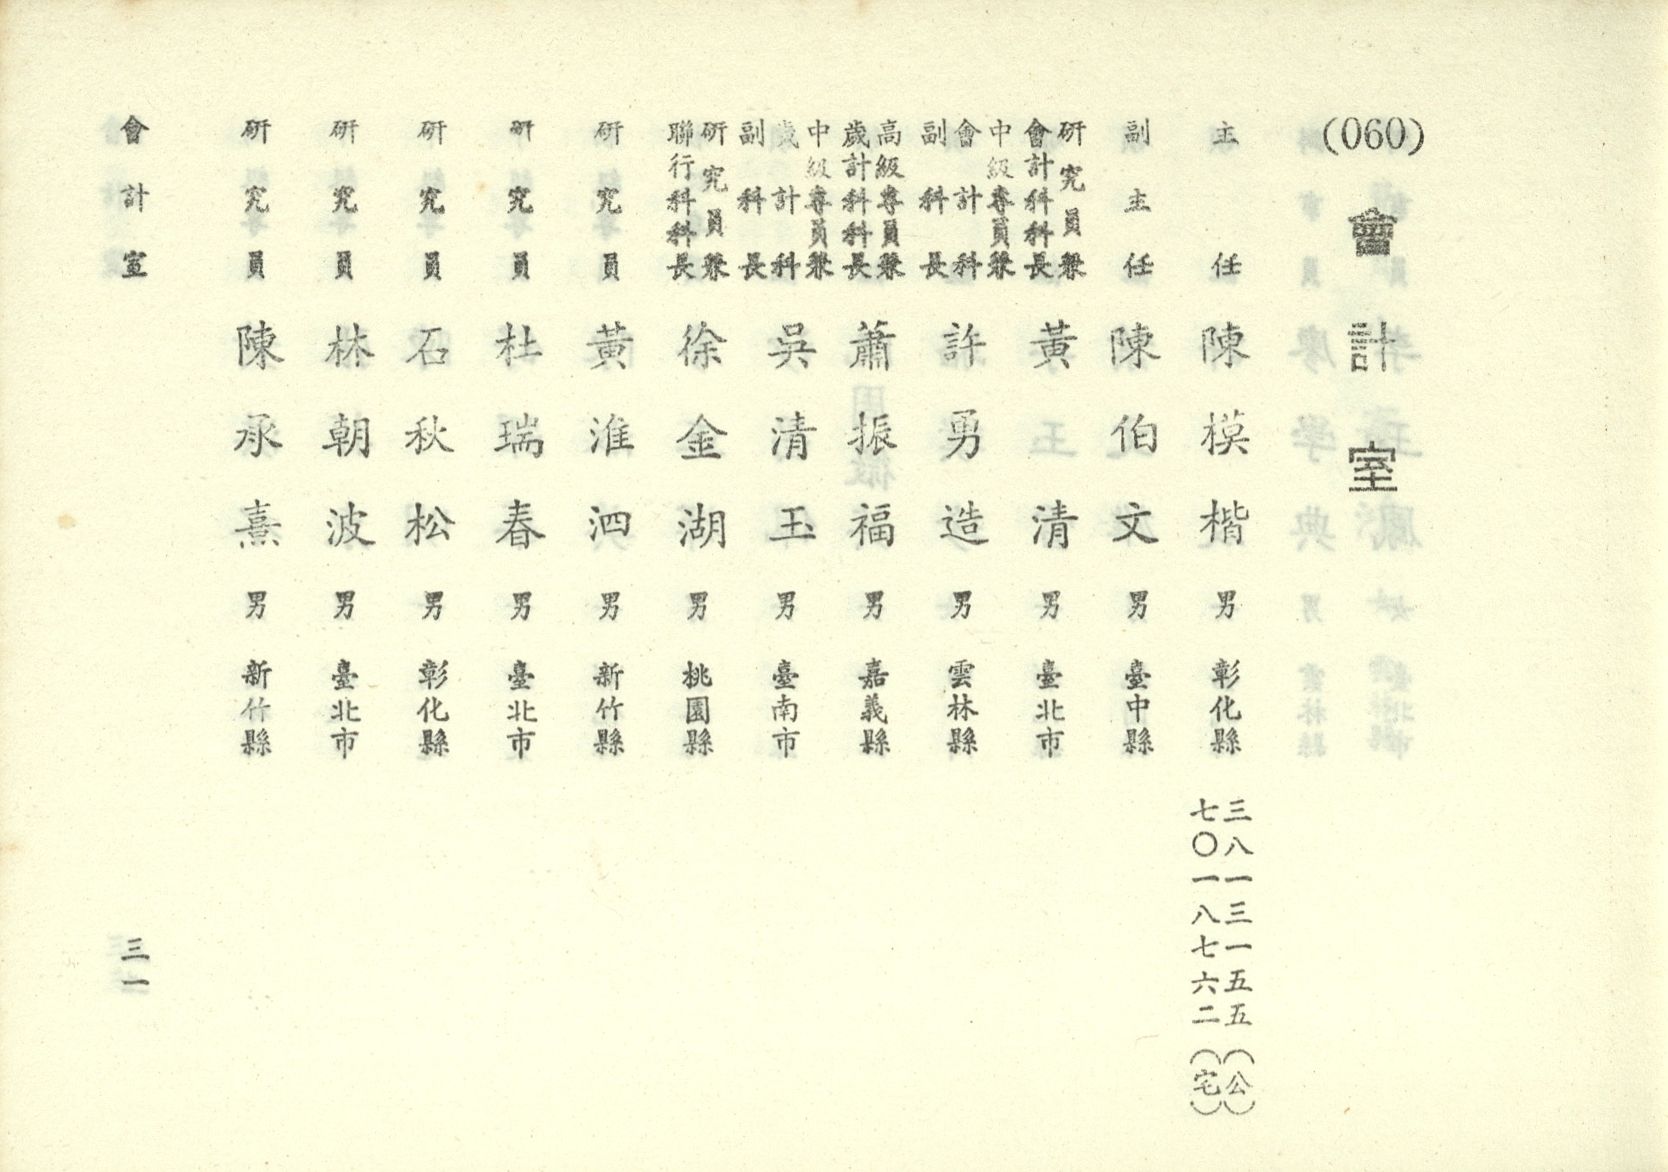 (060)
會計室
主任 陳模楷 男 彰化縣 三八一三一五五(公)
七〇一八七六二(宅)
副主任 陳伯文 男 臺中縣
研究員兼
會計科科長 黃清 男 臺北市
中級專員兼
會計科
副科長 許勇造 男 雲林縣
高級專員兼
歲計科科長 蕭振福 男 嘉義縣
中級專員兼
歲計科
副科長 吳清玉 男 臺南市
研究員兼
聯行科科長 徐金湖 男 桃園縣
研究員 黃淮泗 男 新竹縣
研究員 杜瑞春 男 臺北市
研究員 石秋松 男 彰化縣
研究員 林朝波 男 臺北市
研究員 陳承熹 男 新竹縣
會計室 三一